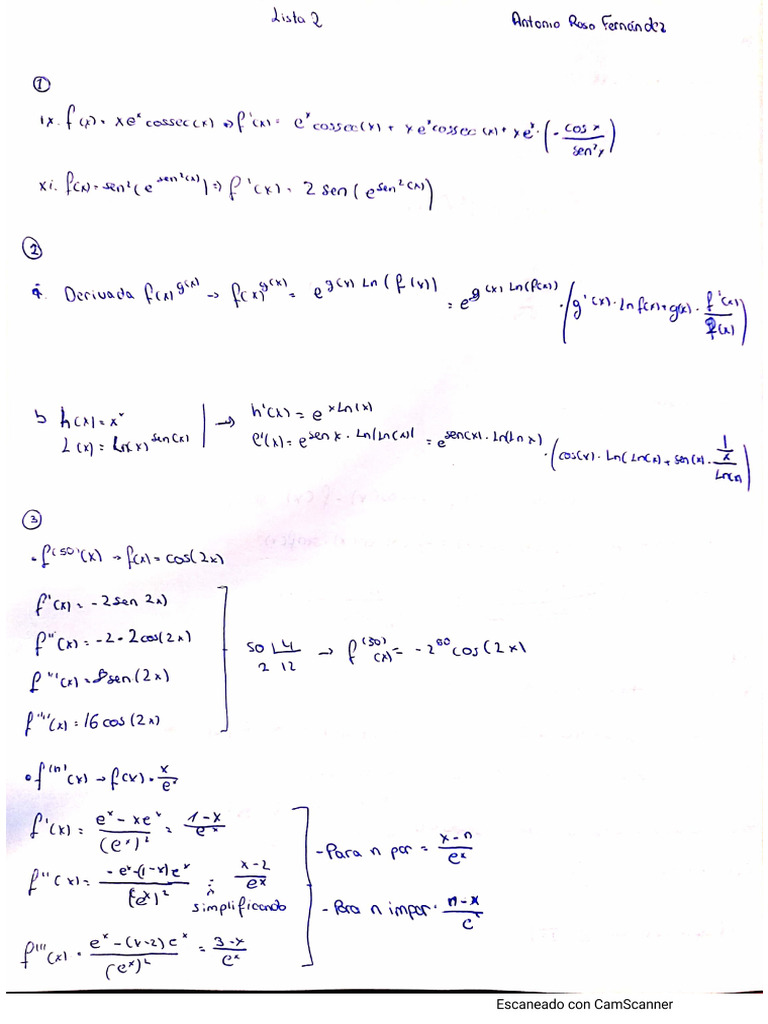 Lista 2
Antonio Roso Fernández
①
ix. f(x) = xe^x cossec(x) ⇒ f'(x) = e^x cossec(x) + xe^x cossec(x) + xe^x · (- cos x / sen²x)
xi. f(x) = sen²(e^sen²(x)) ⇒ f'(x) = 2 sen(e^sen²(x))
②
a. Derivada f(x)^g(x) → f(x)^g(x) = e^g(x) Ln(f(x)) = e^g(x) Ln(f(x)) · (g'(x) · Ln f(x) + g(x) · f'(x) / f(x))
b h(x) = x^x → h'(x) = e^x Ln(x)
L(x) = Ln(x)^sen(x) e'(x) = e^sen x · Ln(Ln(x)) = e^sen(x) · Ln(Ln x) · (cos(x) · Ln(Ln(x) + sen(x) · 1/x / Ln(x))
③
• f^(50)(x) → f(x) = cos(2x)
f'(x) = -2 sen 2x)
f''(x) = -2 · 2cos(2x)
f'''(x) = 8 sen(2x)
f''''(x) = 16 cos(2x)
50 | 4
2 12
→ f^(50)(x) = -2^50 cos(2x)
• f^(n)(x) → f(x) = x / e^x
f'(x) = e^x - xe^x / (e^x)² = 1-x / e^x
f''(x) = -e^x-(1-x)e^x / (e^x)² = x-2 / e^x
simplificando
f'''(x) = e^x-(x-2)e^x / (e^x)² = 3-x / e^x
- Para n par = x-n / e^x
- Para n impar = n-x / e
Escaneado con CamScanner